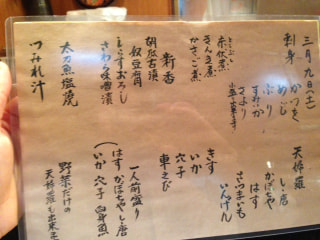 三月九日(土)
刺身 かつを
めじ
ぶり
すみいか
さより
小平
赤飯煮
きんめ煮
かさご煮
新香
胡瓜古漬
奴豆腐
しらすおろし
さわら味噌漬
太刀魚塩焼
つみれ汁
天婦羅
しし唐
かぼちゃ
はす
さつまいも
いんげん
きす
いか
穴子
車えび
一人前盛り
(はす かぼちゃ しし唐
いか 穴子 白身魚
野菜だけの
天婦羅も出来ま